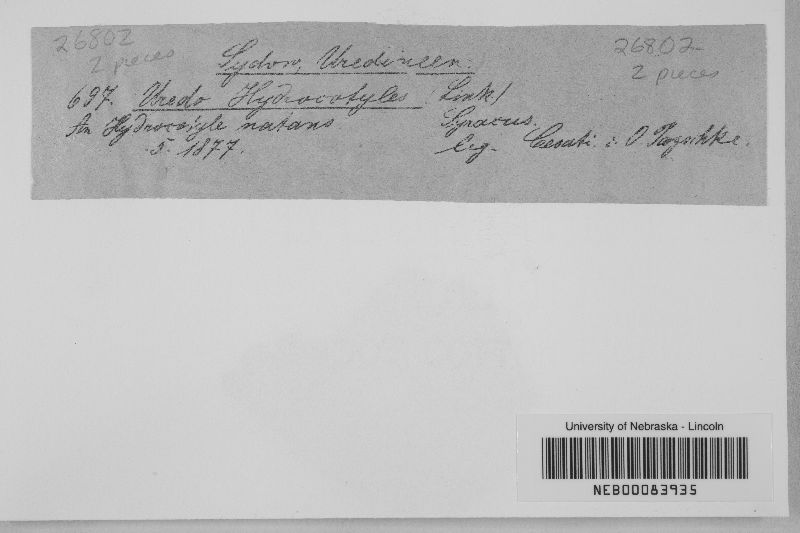 26802
2 pieces
26802
2 pieces
Sydow, Uredineen.
697. Uredo Hydrocotyles Link)
An Hydrocotyle natans Syracus.
5. 1877. leg. Cesati. c. O Pazschke.
University of Nebraska - Lincoln
NEB00083935